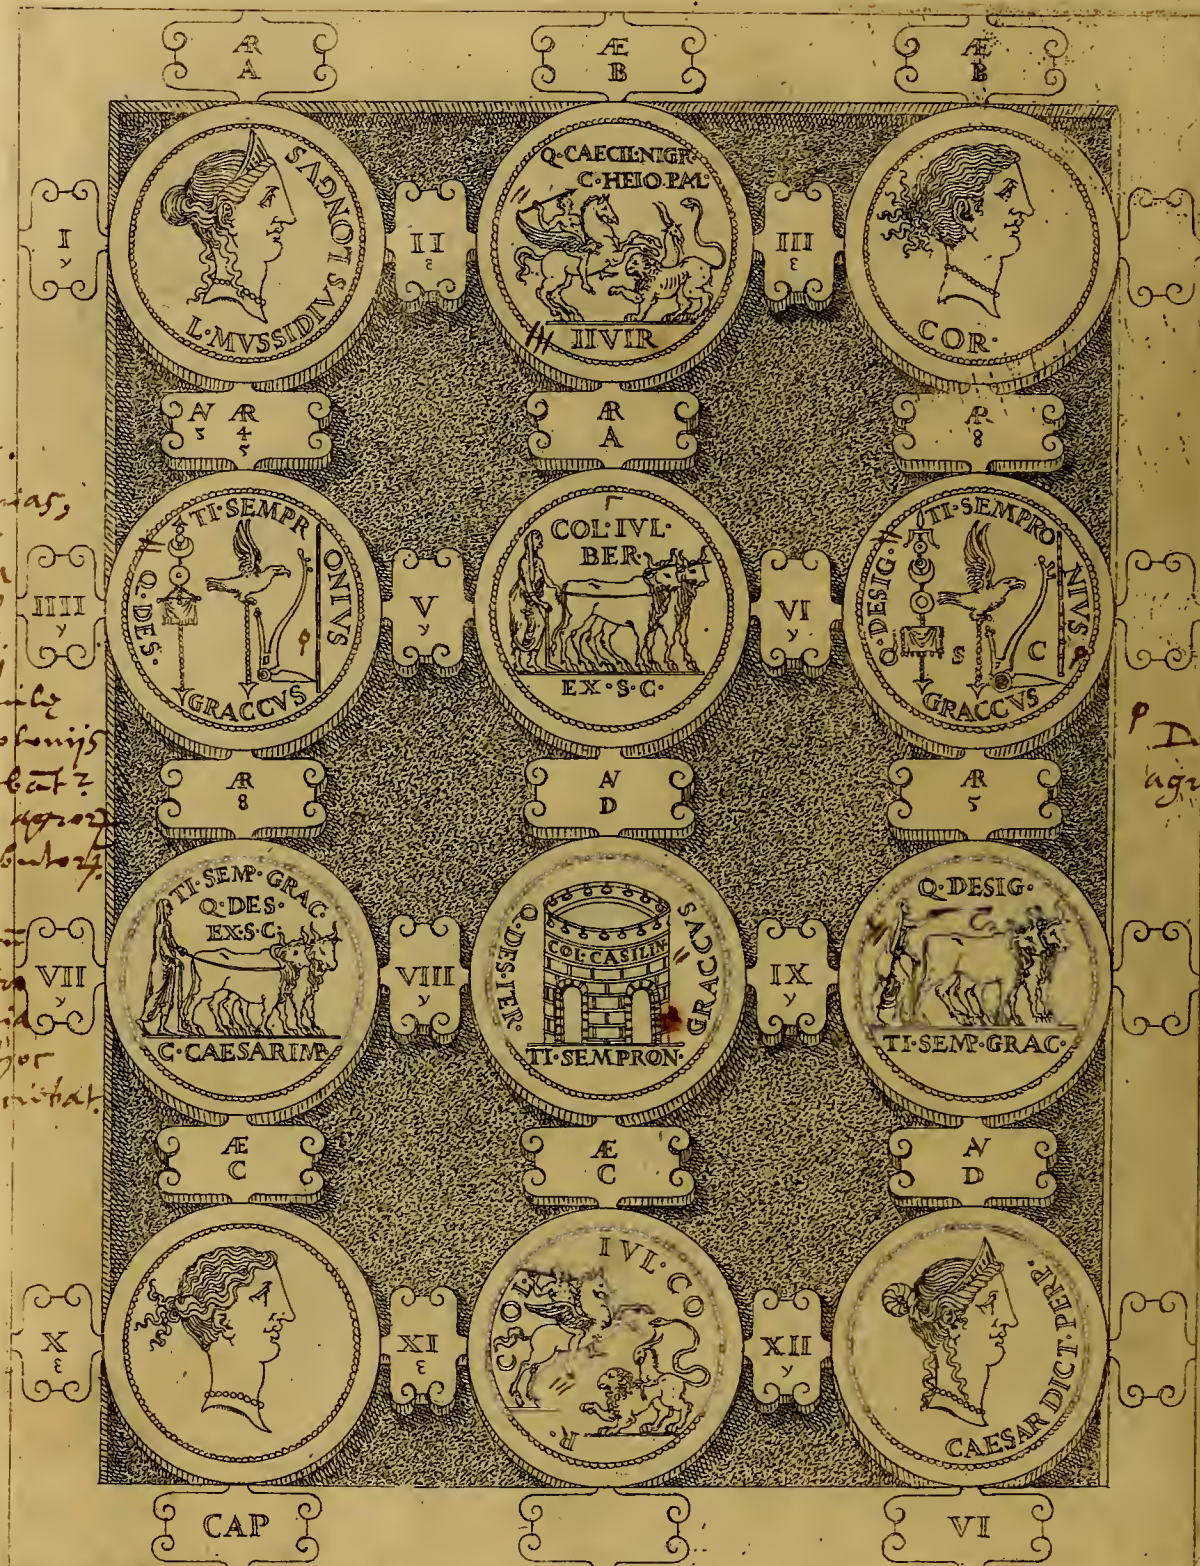 ÆR
A
Æ
B
Æ
B
I
y
L·MVSSIDIVS LONGVS
II
ε
Q·CAECIL·NIGR·
C·HEIO·PAM·
IIVIR
III
ε
COR·
AV ÆR
5 4
5
ÆR
A
ÆR
8
IIII
y
Q·DES·
TI·SEMPR
ONIVS
GRACCVS
V
y
COL·IVL·
BER·
EX·S·C·
VI
y
Q·DESIG·
TI·SEMPRO
NIVS
S C
GRACCVS
ÆR
8
AV
D
ÆR
5
VII
y
TI·SEMP·GRAC·
Q·DES·
EX·S·C·
C·CAESAR IMP·
VIII
y
Q·DES·ITER·
COL·CASILIN·
GRACCVS
TI·SEMPRON·
IX
y
Q·DESIG·
TI·SEMP·GRAC·
Æ
C
Æ
C
AV
D
X
ε
XI
ε
IVL·CO
R·
XII
y
CAESAR DICT·PERP·
CAP
VI
agr